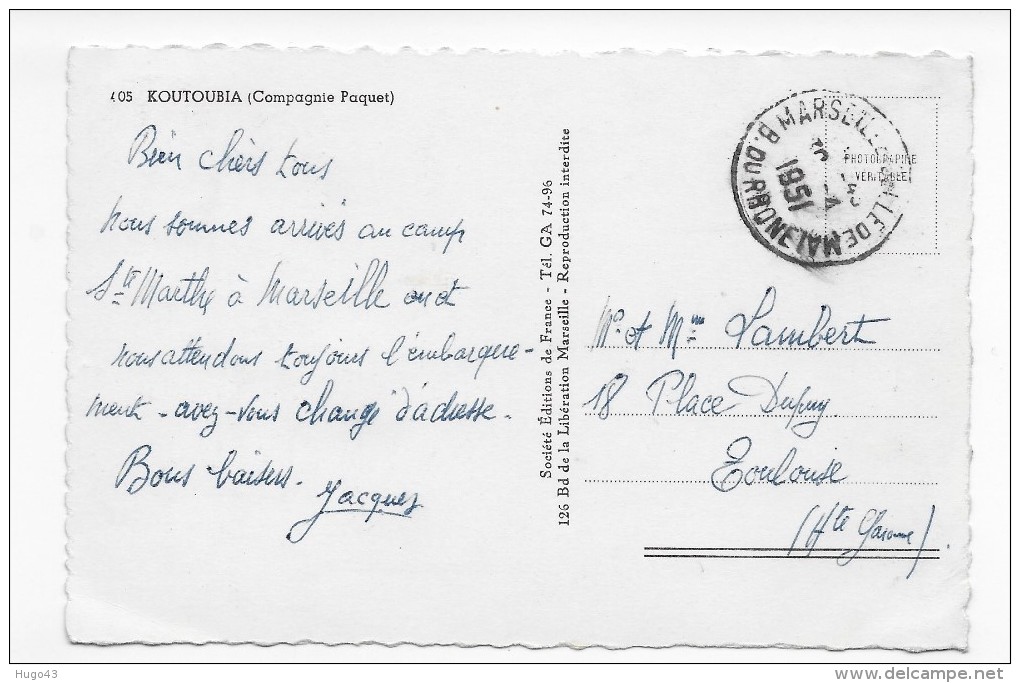 405 KOUTOUBIA (Compagnie Paquet)
Bien chers tous
nous sommes arrivés au camp
Ste Marthe à Marseille on et
nous attendons toujours l'embarque-
ment - avez-vous changé d'adresse.
Bons baisers.
Jacques
Société Éditions de France - Tél. GA 74-96
126 Bd de la Libération Marseille - Reproduction interdite
MARSEILLE
B. DU RHONE
1951
PHOTOGRAPHIE
VÉRITABLE
Mr et Mme Lambert
18 Place Dupuy
Toulouse
(Hte Garonne)
Hugo43
delcampe.net